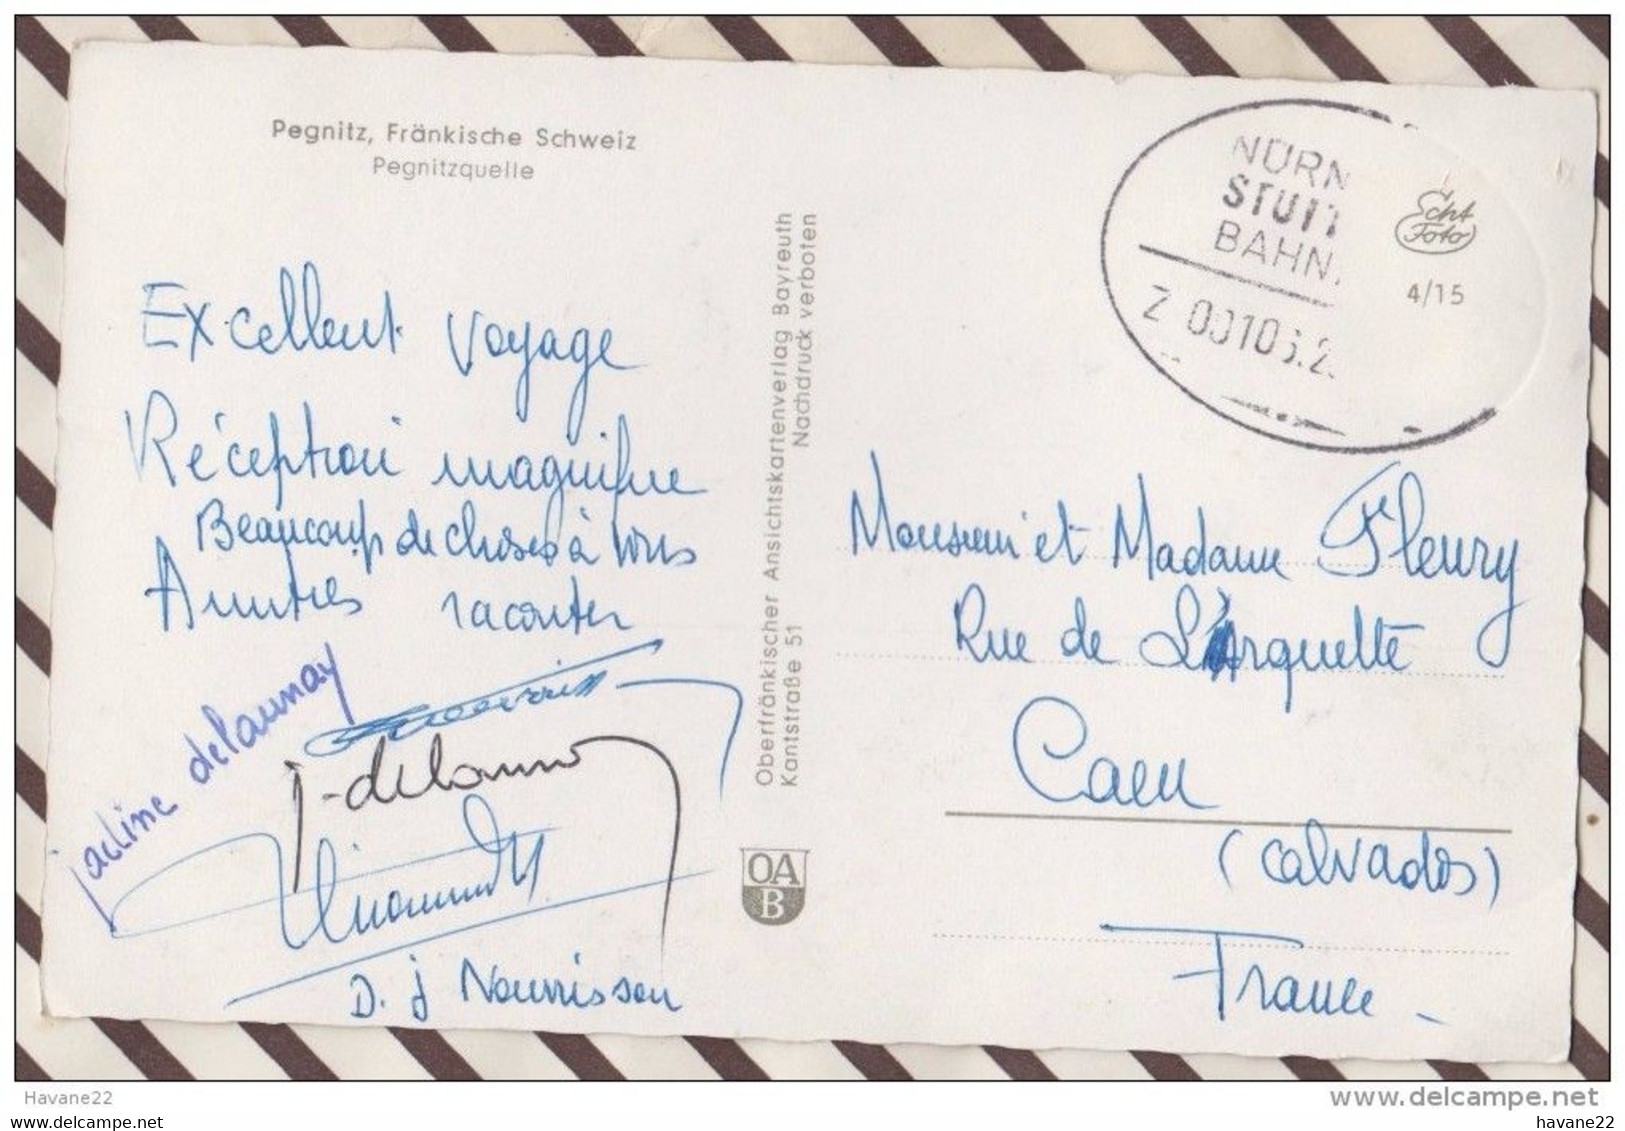 Pegnitz, Fränkische Schweiz
Pegnitzquelle
Excellent voyage
Réception magnifique
Beaucoup de choses à vous
Auntres raconter
Jacline delaunay
J. delaunay
D. J Nourrisson
Oberfränkischer Ansichtskartenverlag Bayreuth
Kantstraße 51
Nachdruck verboten
OA
B
NÜRN
STUTT
BAHN
Z 00106.2
Echt
Foto
4/15
Monsieur et Madame Fleury
Rue de L'Arquette
Caen
(Calvados)
France
Havane22
www.delcampe.net
havane22